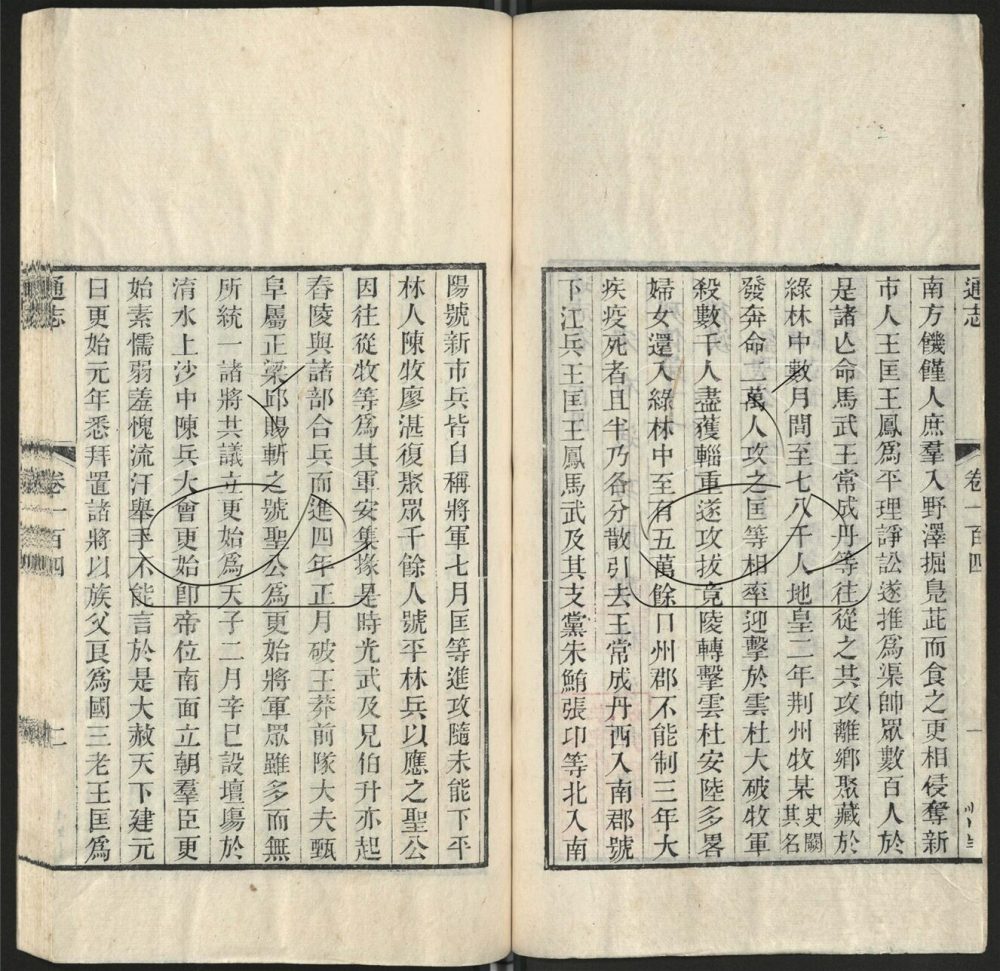 通志
卷一百四
一
南方饑僅人庶羣入野澤掘鳧茈而食之更相侵奪新
市人王匡王鳳爲平理諍訟遂推爲渠帥眾數百人於
是諸亡命馬武王常成丹等往從之其攻離鄉聚藏於
綠林中數月間至七八千人地皇二年荆州牧某史闕其名
發奔命二萬人攻之匡等相率迎擊於雲杜大破牧軍
殺數千人盡獲輜重遂攻拔竟陵轉擊雲杜安陸多畧
婦女還入綠林中至有五萬餘口州郡不能制三年大
疾疫死者且半乃各分散引去王常成丹西入南郡號
下江兵王匡王鳳馬武及其支黨朱鮪張卬等北入南
陽號新市兵皆自稱將軍七月匡等進攻隨未能下平
林人陳牧廖湛復聚眾千餘人號平林兵以應之聖公
因往從牧等爲其軍安集掾是時光武及兄伯升亦起
舂陵與諸部合兵而進四年正月破王莽前隊大夫甄
阜屬正梁邱賜斬之號聖公爲更始將軍眾雖多而無
所統一諸將共議立更始爲天子二月辛巳設壇場於
淯水上沙中陳兵大會更始卽帝位南面立朝羣臣更
始素懦弱羞愧流汗舉手不能言於是大赦天下建元
曰更始元年悉拜置諸將以族父良爲國三老王匡爲
通志
卷一百四
二